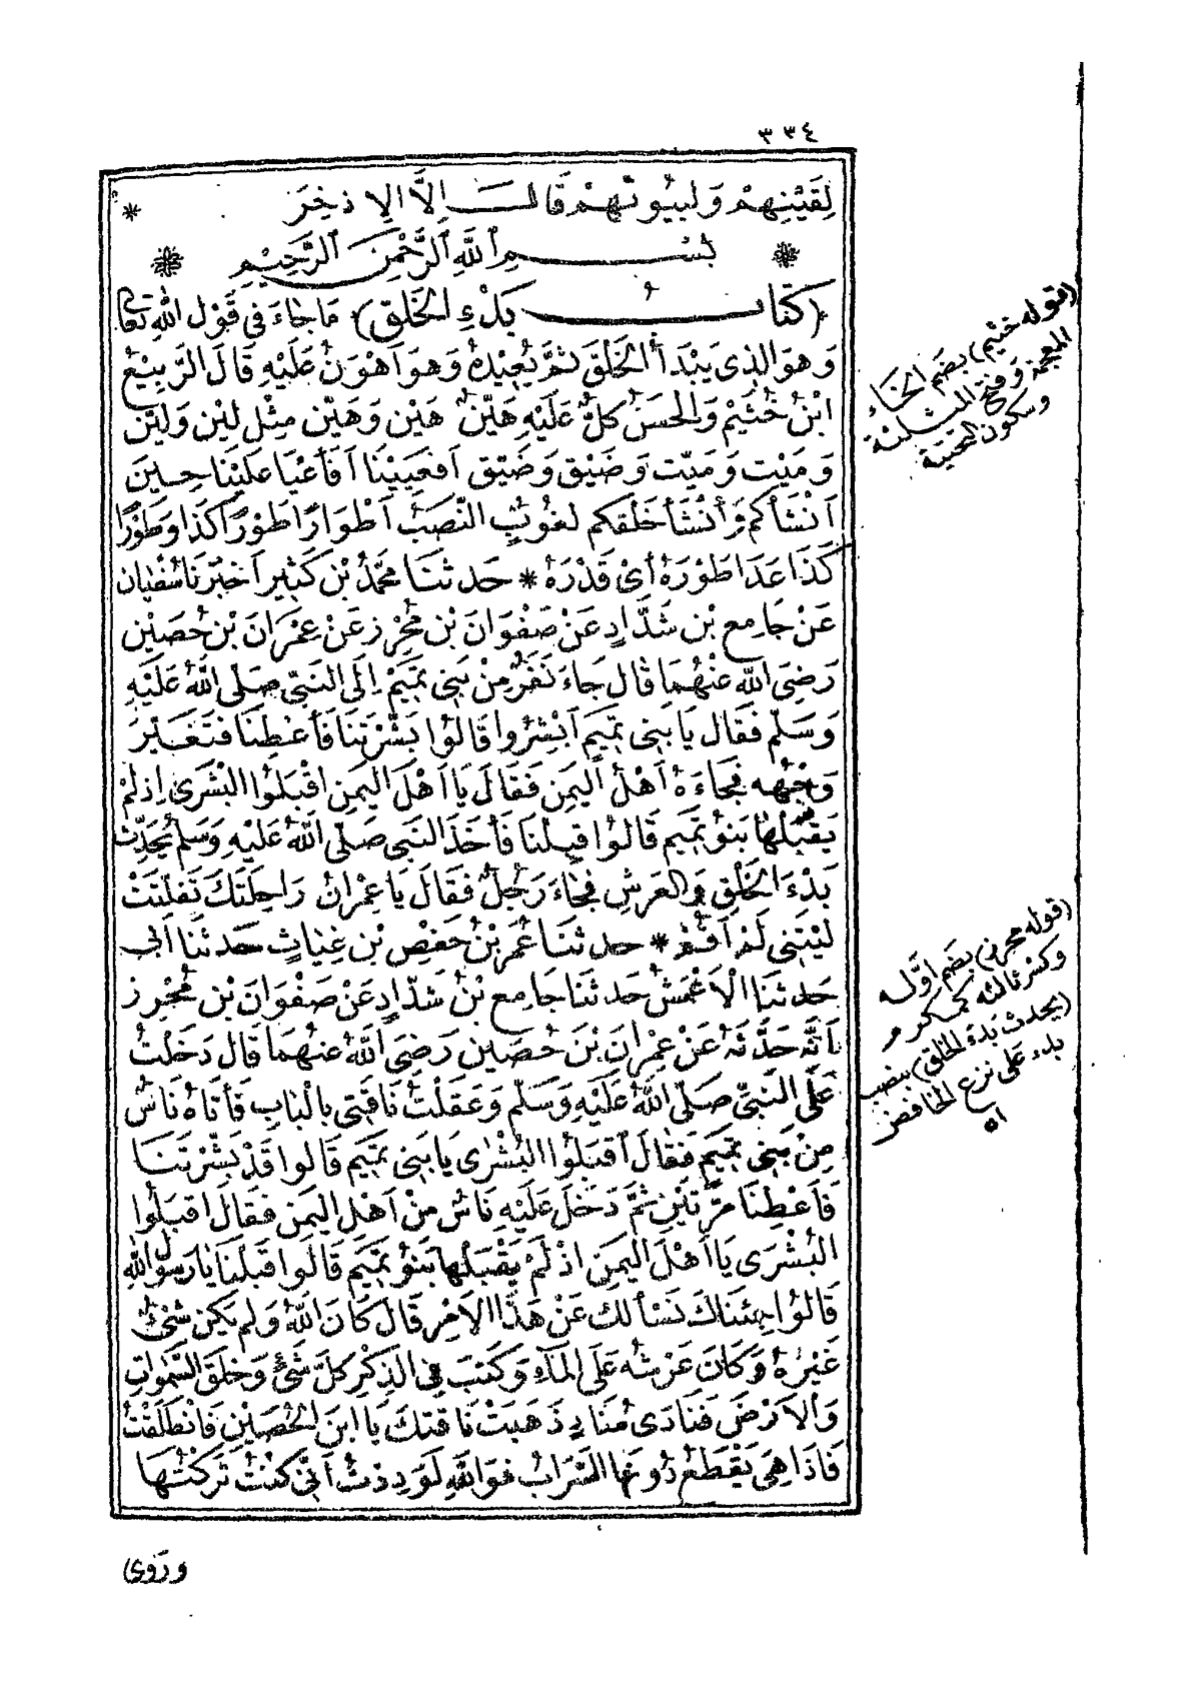 ٣٣٤
لِقَيْنِهِمْ وَلِبُيُوتِهِمْ قَالَ اِلَّا الْاِذْخِرَ *
بِسْمِ اللّٰهِ الرَّحْمٰنِ الرَّحِيْمِ
(كِتَابُ بَدْءِ الْخَلْقِ) مَاجَاءَ فِى قَوْلِ اللّٰهِ تَعَالَى
وَهُوَ الَّذِى يَبْدَأُ الْخَلْقَ ثُمَّ يُعِيْدُهُ وَهُوَ اَهْوَنُ عَلَيْهِ قَالَ الرَّبِيْعُ
ابْنُ خُثَيْمٍ وَالْحَسَنُ كُلٌّ عَلَيْهِ هَيِّنٌ هَيْنٌ وَهَيِّنٌ مِثْلُ لَيْنٍ وَلَيِّنٍ
وَمَيْتٍ وَمَيِّتٍ وَضَيْقٍ وَضَيِّقٍ اَفَعَيِيْنَا اَفَاَعْيَا عَلَيْنَا حِيْنَ
اَنْشَأَكُمْ وَأَنْشَأَ خَلْقَكُمْ لُغُوْبٌ النَّصَبُ اَطْوَارًا طَوْرًا كَذَا وَطَوْرًا
كَذَا عَدَا طَوْرَهُ أَىْ قَدْرَهُ * حَدثنَا مُحَمَّدُ بْنُ كَثِيْرٍ اَخْبَرَنَا سُفْيَانُ
عَنْ جَامِعِ بْنِ شَدَّادٍ عَنْ صَفْوَانَ بْنِ مُحْرِزٍ عَنْ عِمْرَانَ بْنِ حُصَيْنٍ
رَضِىَ اللّٰهُ عَنْهُمَا قَالَ جَاءَ نَفَرٌ مِنْ بَنِى تَمِيْمٍ اِلَى النَّبِىِّ صَلَّى اللّٰهُ عَلَيْهِ
وَسَلَّمَ فَقَالَ يَا بَنِى تَمِيْمٍ اَبْشِرُوا قَالُوْا بَشَّرْتَنَا فَأَعْطِنَا فَتَغَيَّرَ
وَجْهُه فَجَاءَهُ اَهْلُ الْيَمَنِ فَقَالَ يَا اَهْلَ الْيَمَنِ اقْبَلُوْا الْبُشْرَى اِذْلَمْ
يَقْبَلْهَا بَنُوْ تَمِيْمٍ قَالُوْا قَبِلْنَا فَأَخَذَ النَّبِى صَلَّى اللّٰهُ عَلَيْهِ وَسَلَّمَ يُحَدِّثُ
بَدْءَ الْخَلْقِ وَالْعَرْشِ فَجَاءَ رَجُلٌ فَقَالَ يَا عِمْرَانُ رَاحِلَتَكَ تَفَلَّتَتْ
لَيْتَنِى لَمْ اَقُمْ * حدثنَا عُمَرُ بْنُ حَفْصِ بْنِ غِيَاثٍ حَدثنَا اَبِى
حَدثنَا الْاَعْمَشُ حَدثنَا جَامِعُ بْنُ شَدَّادٍ عَنْ صَفْوَانَ بْنِ مُحْرِزٍ
اَنَّه حَدَّثَهُ عَنْ عِمْرَانَ بْنِ حُصَيْنٍ رَضِىَ اللّٰهُ عنهُمَا قَالَ دَخَلْتُ
عَلَى النَّبِىِّ صَلَّى اللّٰهُ عَلَيْهِ وَسَلَّمَ وَعَقَلْتُ نَاقَتِى بِالْبَابِ فَأَتَاهُ نَاسٌ
مِنْ بَنِى تَمِيْمٍ فَقَالَ اقْبَلُوْا الْبُشْرٰى يَا بَنِى تَمِيْمٍ قَالُوا قَدْ بَشَّرْتَنَا
فَاَعْطِنَا مَرَّتَيْنِ ثُمَّ دَخَلَ عَلَيْهِ نَاسٌ مِنْ اَهْلِ الْيَمَنِ فَقَالَ اقْبَلُوْا
الْبُشْرَى يَا اَهْلَ الْيَمَنِ اذْ لَمْ يَقْبَلْهَا بَنُوْ تَمِيْمٍ قَالُوا قَبِلْنَا يَا رَسُوْلَ اللّٰهِ
قَالُوْا جِئْنَاكَ نَسْأَلُكَ عَنْ هَذَا الْاَمْرِ قَالَ كَانَ اللّٰهُ وَلَمْ يَكُنْ شَىْءٌ
غَيْرُهُ وَكَانَ عَرْشُه عَلَى الْمَآءِ وَكَتَبَ فِى الذِّكْرِ كُلَّ شَىْءٍ وَخَلَقَ السَّمٰوَاتِ
وَالْاَرْضَ فَنَادَى مُنَادٍ ذَهَبَتْ نَاقَتُكَ يَا ابْنَ الْحُصَيْنِ فَانْطَلَقْتُ
فَاذَا هِىَ يَقْطَعُ دُوْنَهَا السَّرَابُ فَوَاللّٰهِ لَوَدِدْتُ اَنِّى كُنْتُ تَرَكْتُهَا
وَرَوٰى
(قوله خثيم) بضم الخاء
المعجمة وفتح المثلثة
وسكون التحتية
(قوله محرز) بضم أوّله
وكسر ثالثه كمكرم
(يحدث بدء الخلق) بنصب
بدء على نزع الخافض
اه